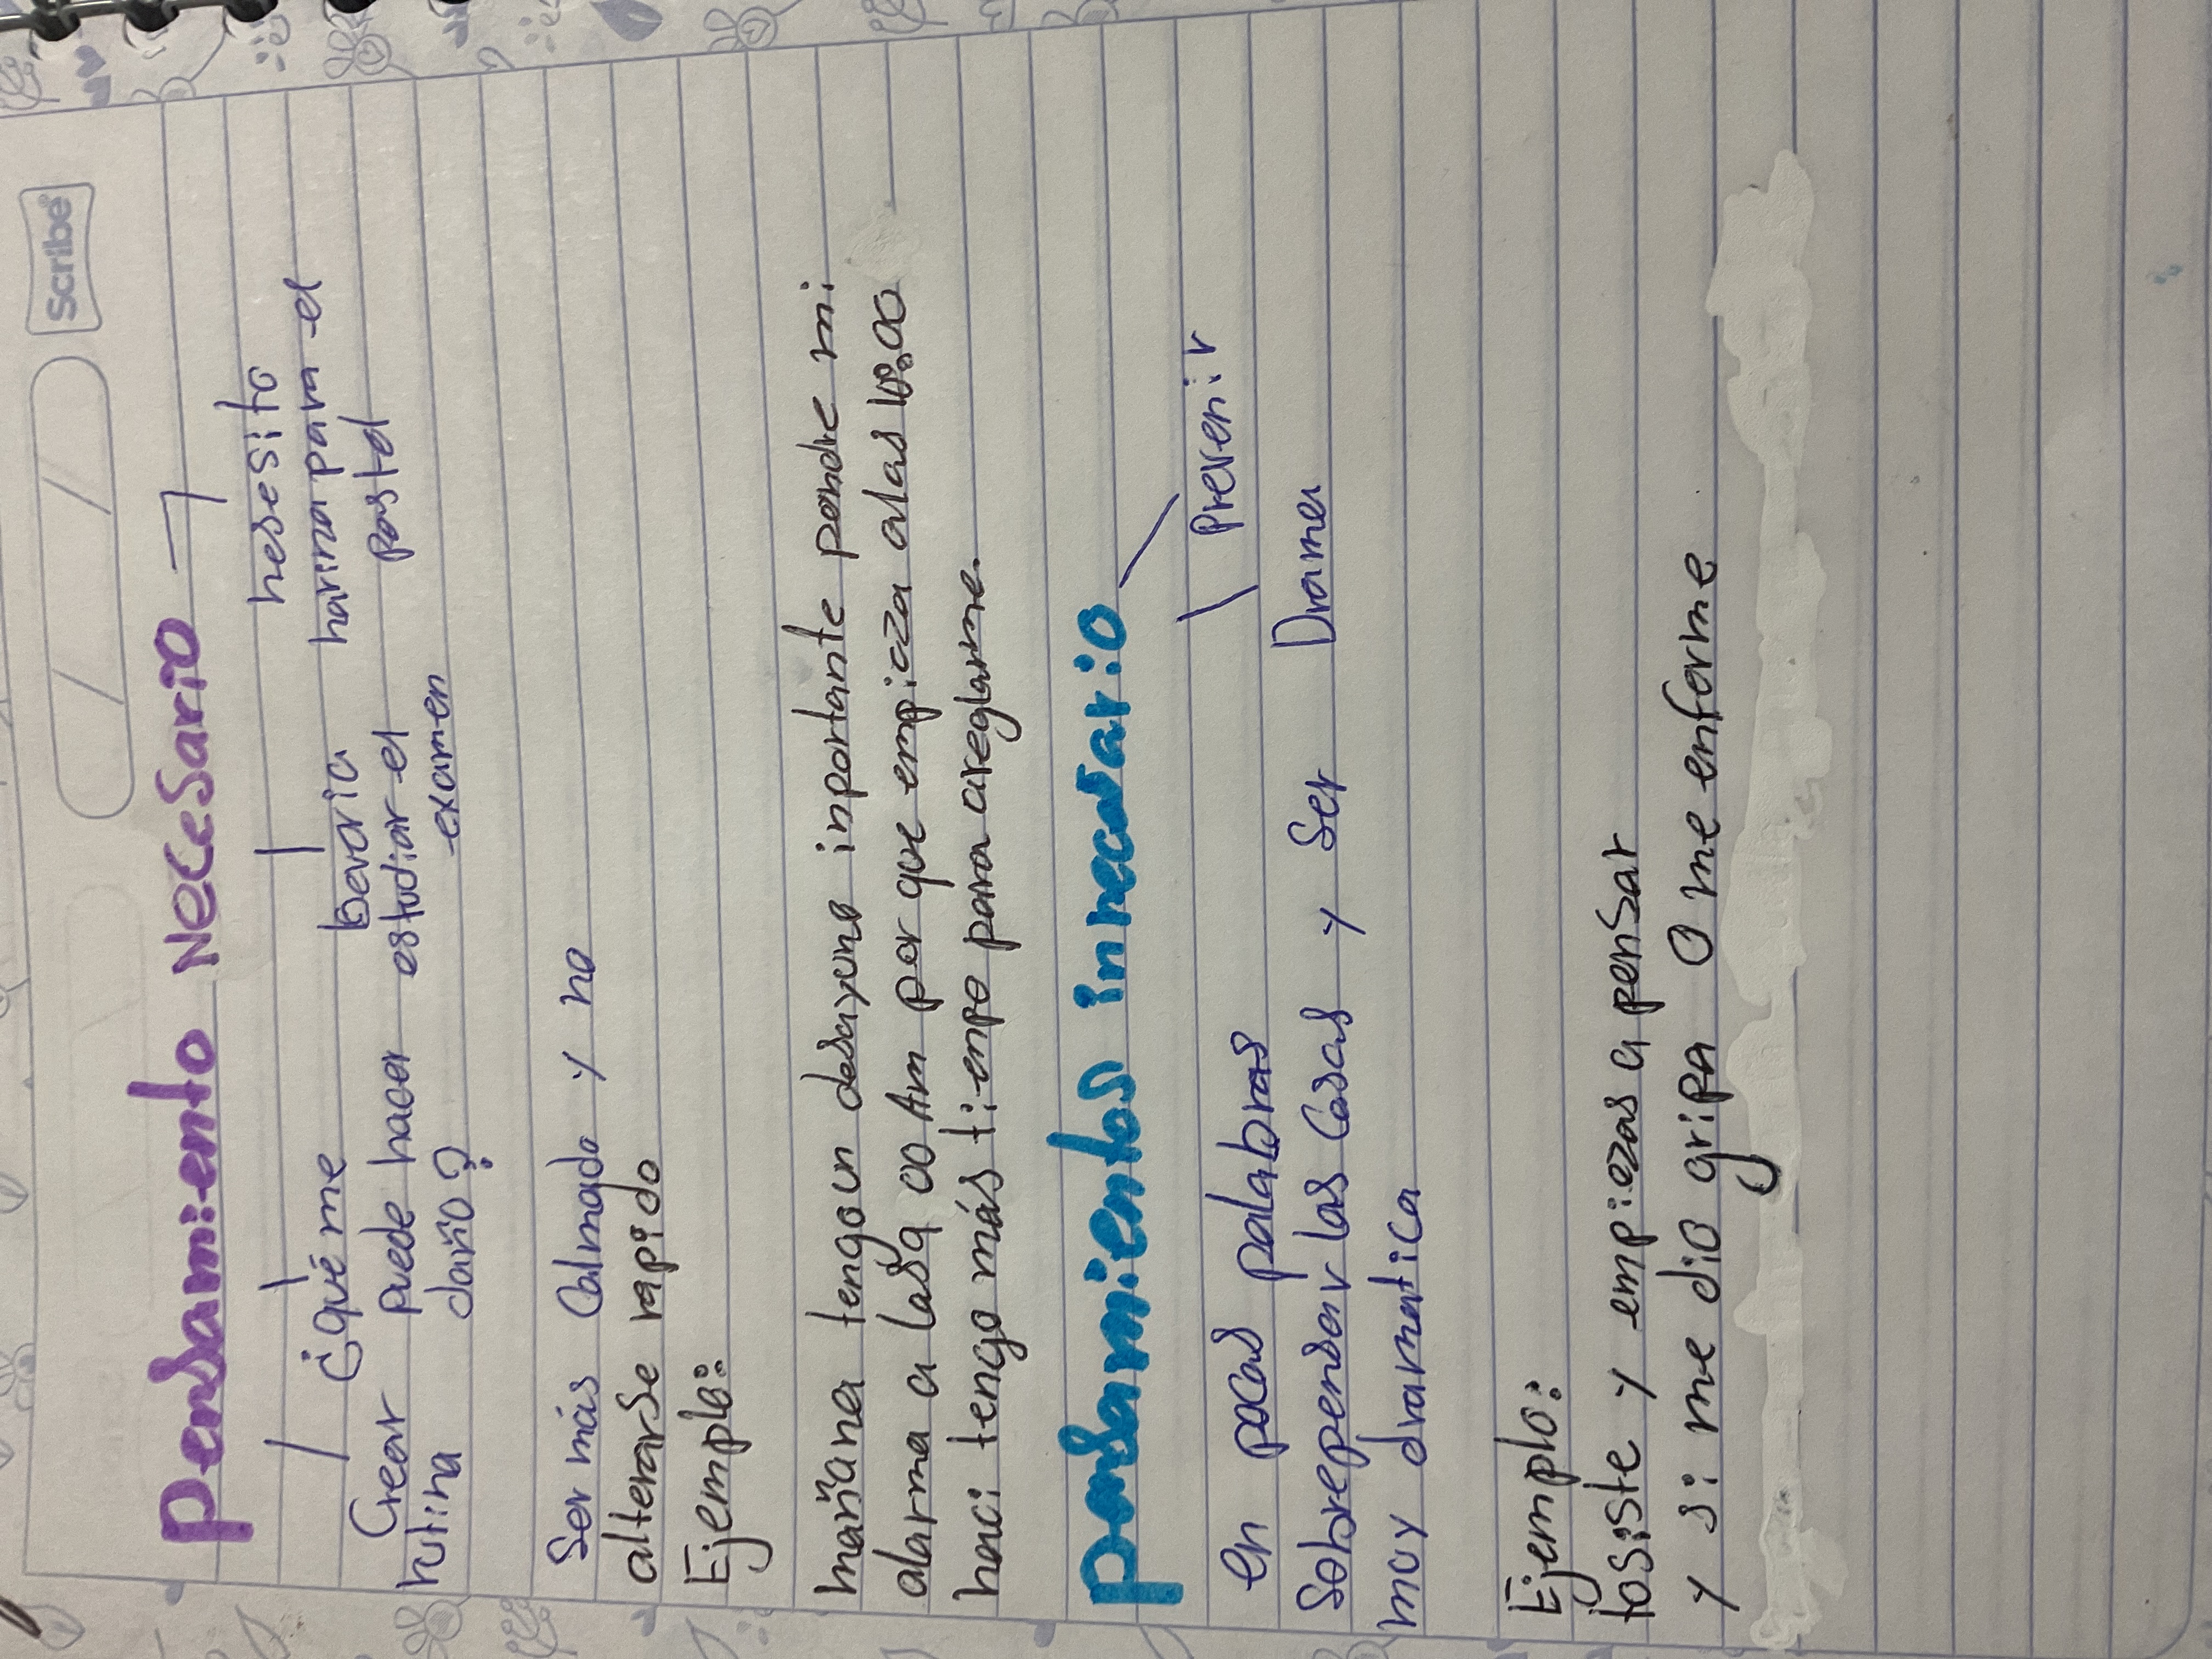 Scribe
Pensamiento Necesario
Crear
rutina
¿qué me
puede hacer
daño?
Devería
estudiar el
examen
nesesito
harina para el
pastel
Ser más Calmado y no
alterarse rapido
Ejemplo:
mañana tengo un desayuno inportante pondre mi
alarma a las 9 00 Am por que empieza alas 10:00
henci tengo más tienpo para areglarme.
pensamientos innecesario
en pocas palabras Prevenir
Sobrepensar las Cosas y Ser Drama
muy dramatica
Ejemplo:
tosiste y empiezas a penSar
y si me dio gripa O me enferme